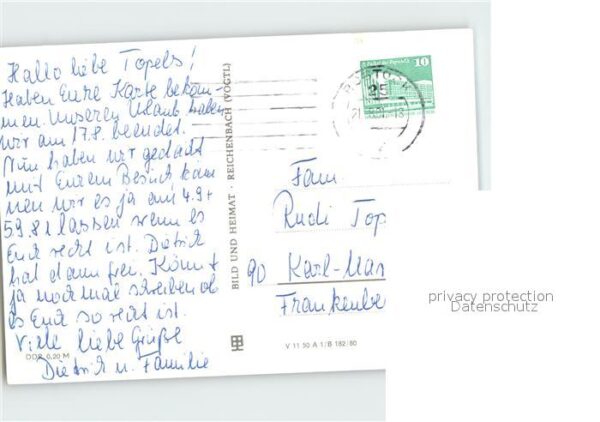 Hallo liebe Topels!
Haben Eure Karte bekom-
men. Unseren Urlaub haben
wir am 17.8. beendet.
Nun haben wir gedacht
mit Eurem Besuch, kön
nen wir es ja am 4.9+
5.9.81 lassen wenn es
Euch recht ist. Dietrich
hat dann frei. Könnt
ja noch mal schreiben ob
es Euch so recht ist.
Viele liebe Grüße
Dietrich u. Familie
DDR 0,20 M
BILD UND HEIMAT · REICHENBACH (VOGTL)
10
25
Fam.
Rudi Top
90 Karl-Mar
Frankenbe
V 11 50 A 1/B 182/80
privacy protection
Datenschutz